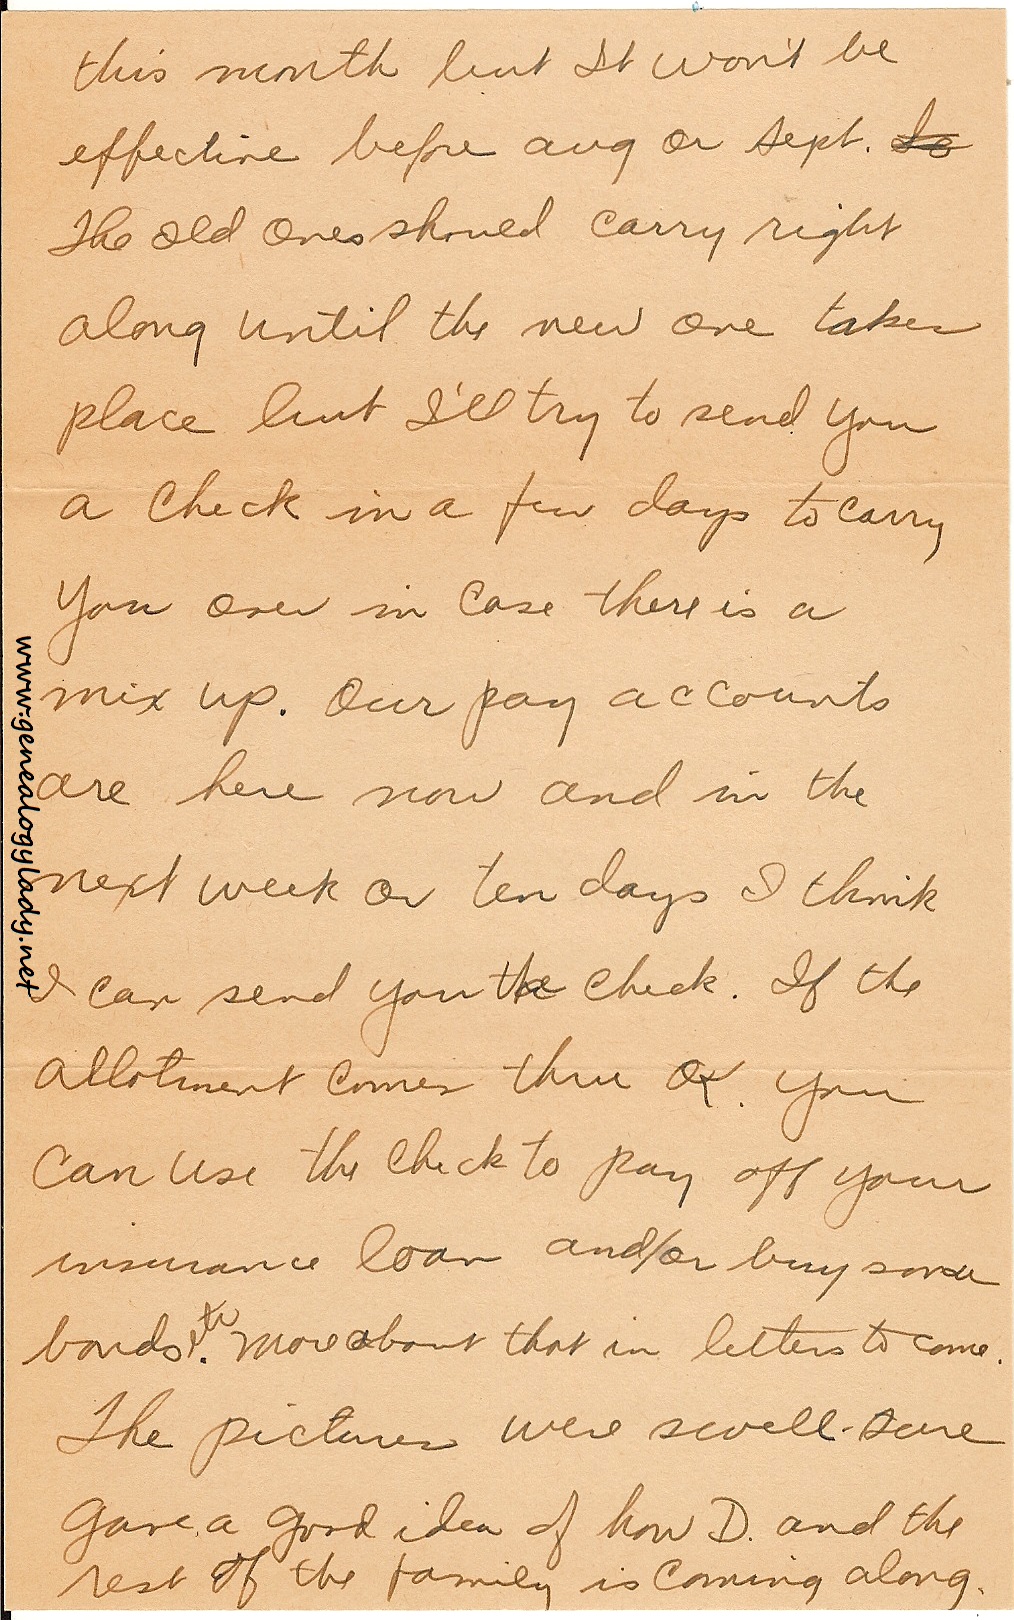 this month but It won't be
effective before aug or sept. So
The old ones should carry right
along until the new one takes
place but I'll try to send you
a check in a few days to carry
you over in case there is a
mix up. Our pay accounts
are here now and in the
next week or ten days I think
I can send you the check. If the
allotment comes thru OK. you
can use the check to pay off your
insurance loan and/or buy some
bonds. More about that in letters to come.
The pictures were swell - sure
gave a good idea of how D. and the
rest of the family is coming along.
www.genealogylady.net